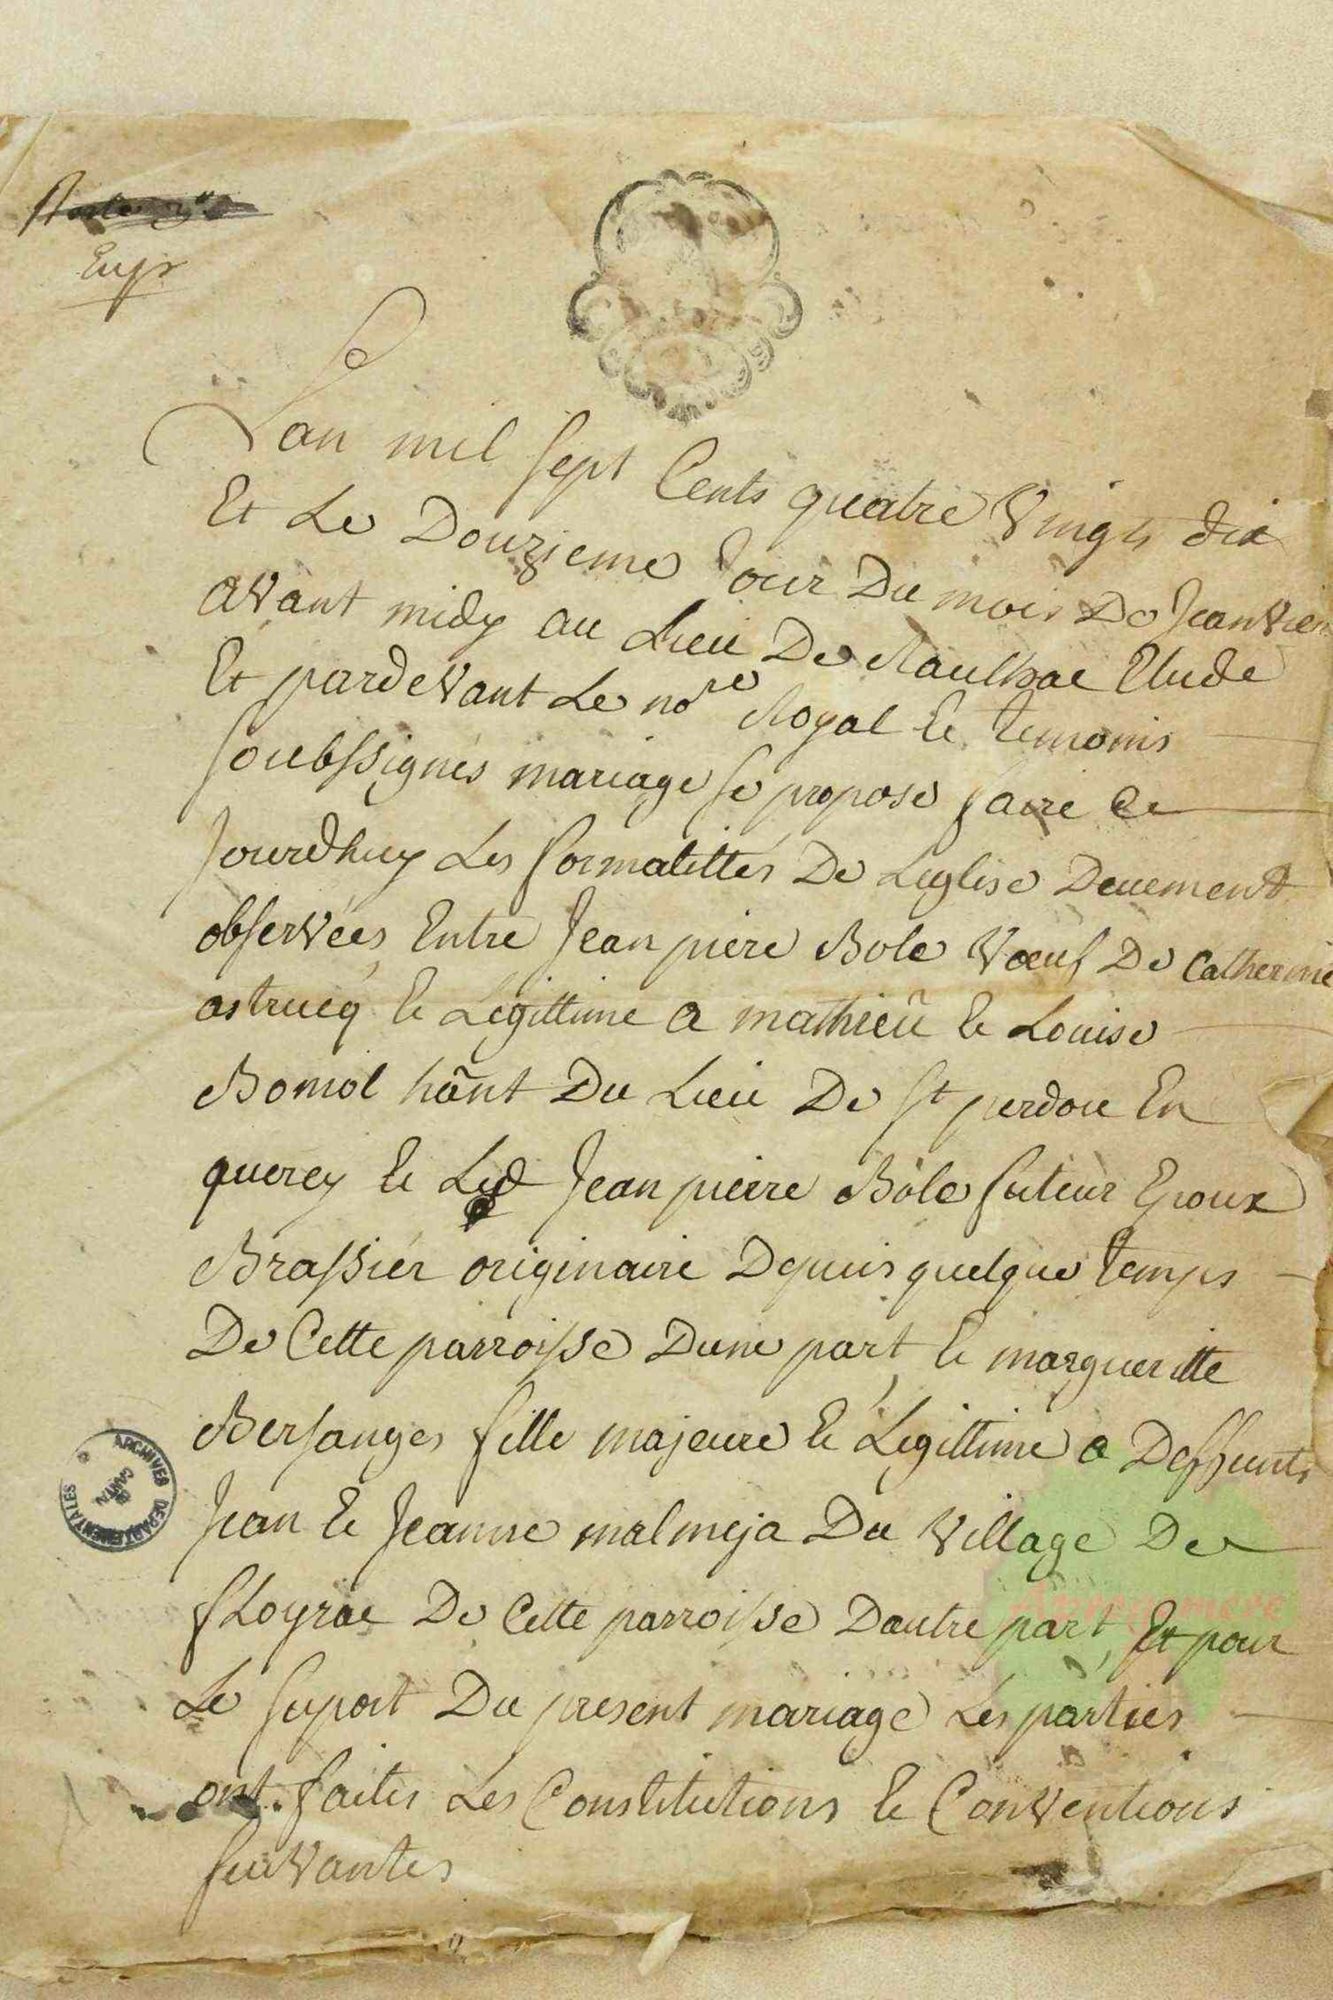 Expr
Lan mil sept Cents quatre Vingts dix
Et Le Douzieme Jour Du mois De Jeanvier
avant midy au Lieu De Raulhac Etude
Et pardevant Le nore Royal Et temoins
soubssignés mariage se propose faire Ce
Jourdhuy Les formalittés De Leglise Deuement
observées Entre Jean piere Bole Vœuf De Catherine
astrucq Et Legittime a mathieu Et Louise
Bomol hãnt Du Lieu De St perdou En
quercy Et Led Jean pierre Bole futeur Epoux
Brassier originaire Depuis quelque temps
De Cette parroisse Dune part, Et margueritte
Bersanges fille majeure Et Légittime a Deffunts
Jean Et Jeanne malmeja Du Village De
floyrac De Cette parroisse Dautre part, Et pour
Le suport Du present mariage Les parties
ont faites Les Constitutions Et Conventions
suivantes
ARCHIVES DEPARTEMENTALES
DU CANTAL